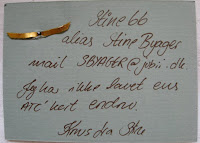 Stine66
alias Stine Byager
mail SBYAGER@jubii.dk
Jeg har ikke lavet eus
ATC' kort endnu.
Knus fra Stine